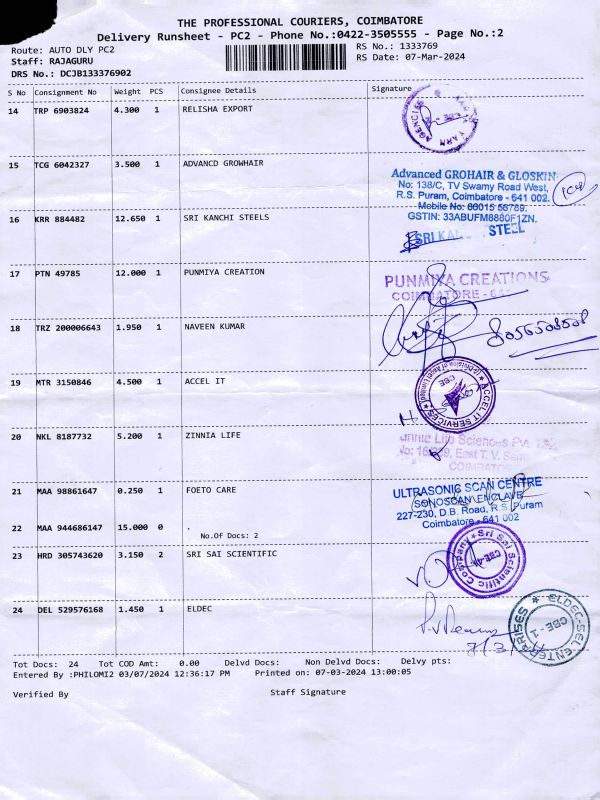 THE PROFESSIONAL COURIERS, COIMBATORE
Delivery Runsheet - PC2 - Phone No.:0422-3505555 - Page No.:2
Route: AUTO DLY PC2
RS No.: 1333769
Staff: RAJAGURU
RS Date: 07-Mar-2024
DRS No.: DCJB133376902
S No Consignment No Weight PCS Consignee Details Signature
14 TRP 6903824 4.300 1 RELISHA EXPORT
15 TCG 6042327 3.500 1 ADVANCD GROWHAIR
Advanced GROHAIR & GLOSKIN
No: 138/C, TV Swamy Road West,
R.S. Puram, Coimbatore - 641 002.
Mobile No: 66015 56789.
GSTIN: 33ABUFM8880F1ZN.
16 KRR 884482 12.650 1 SRI KANCHI STEELS
SRI KAN STEEL
17 PTN 49785 12.000 1 PUNMIYA CREATION
PUNMIYA CREATIONS
COIMBATORE - 641
18 TRZ 200006643 1.950 1 NAVEEN KUMAR
8056508508
19 MTR 3150846 4.500 1 ACCEL IT
ACCEL IT SERVICES
CBE
20 NKL 8187732 5.200 1 ZINNIA LIFE
Life Sciences Pvt
East T. V. Sam
COIMBATOR
21 MAA 98861647 0.250 1 FOETO CARE
ULTRASONIC SCAN CENTRE
SONOSCAN ENCLAVE
227-230, D.B. Road, R.S. Puram
Coimbatore - 641 002
22 MAA 944686147 15.000 0 .
No.Of Docs: 2
23 HRD 305743620 3.150 2 SRI SAI SCIENTIFIC
Sri Sai Scientific Company
24 DEL 529576168 1.450 1 ELDEC
ELDEC-SEL ENTERPRISES
CBE - 1
Tot Docs: 24 Tot COD Amt: 0.00 Delvd Docs: Non Delvd Docs: Delvy pts:
Entered By :PHILOMI2 03/07/2024 12:36:17 PM Printed on: 07-03-2024 13:00:05
Verified By Staff Signature